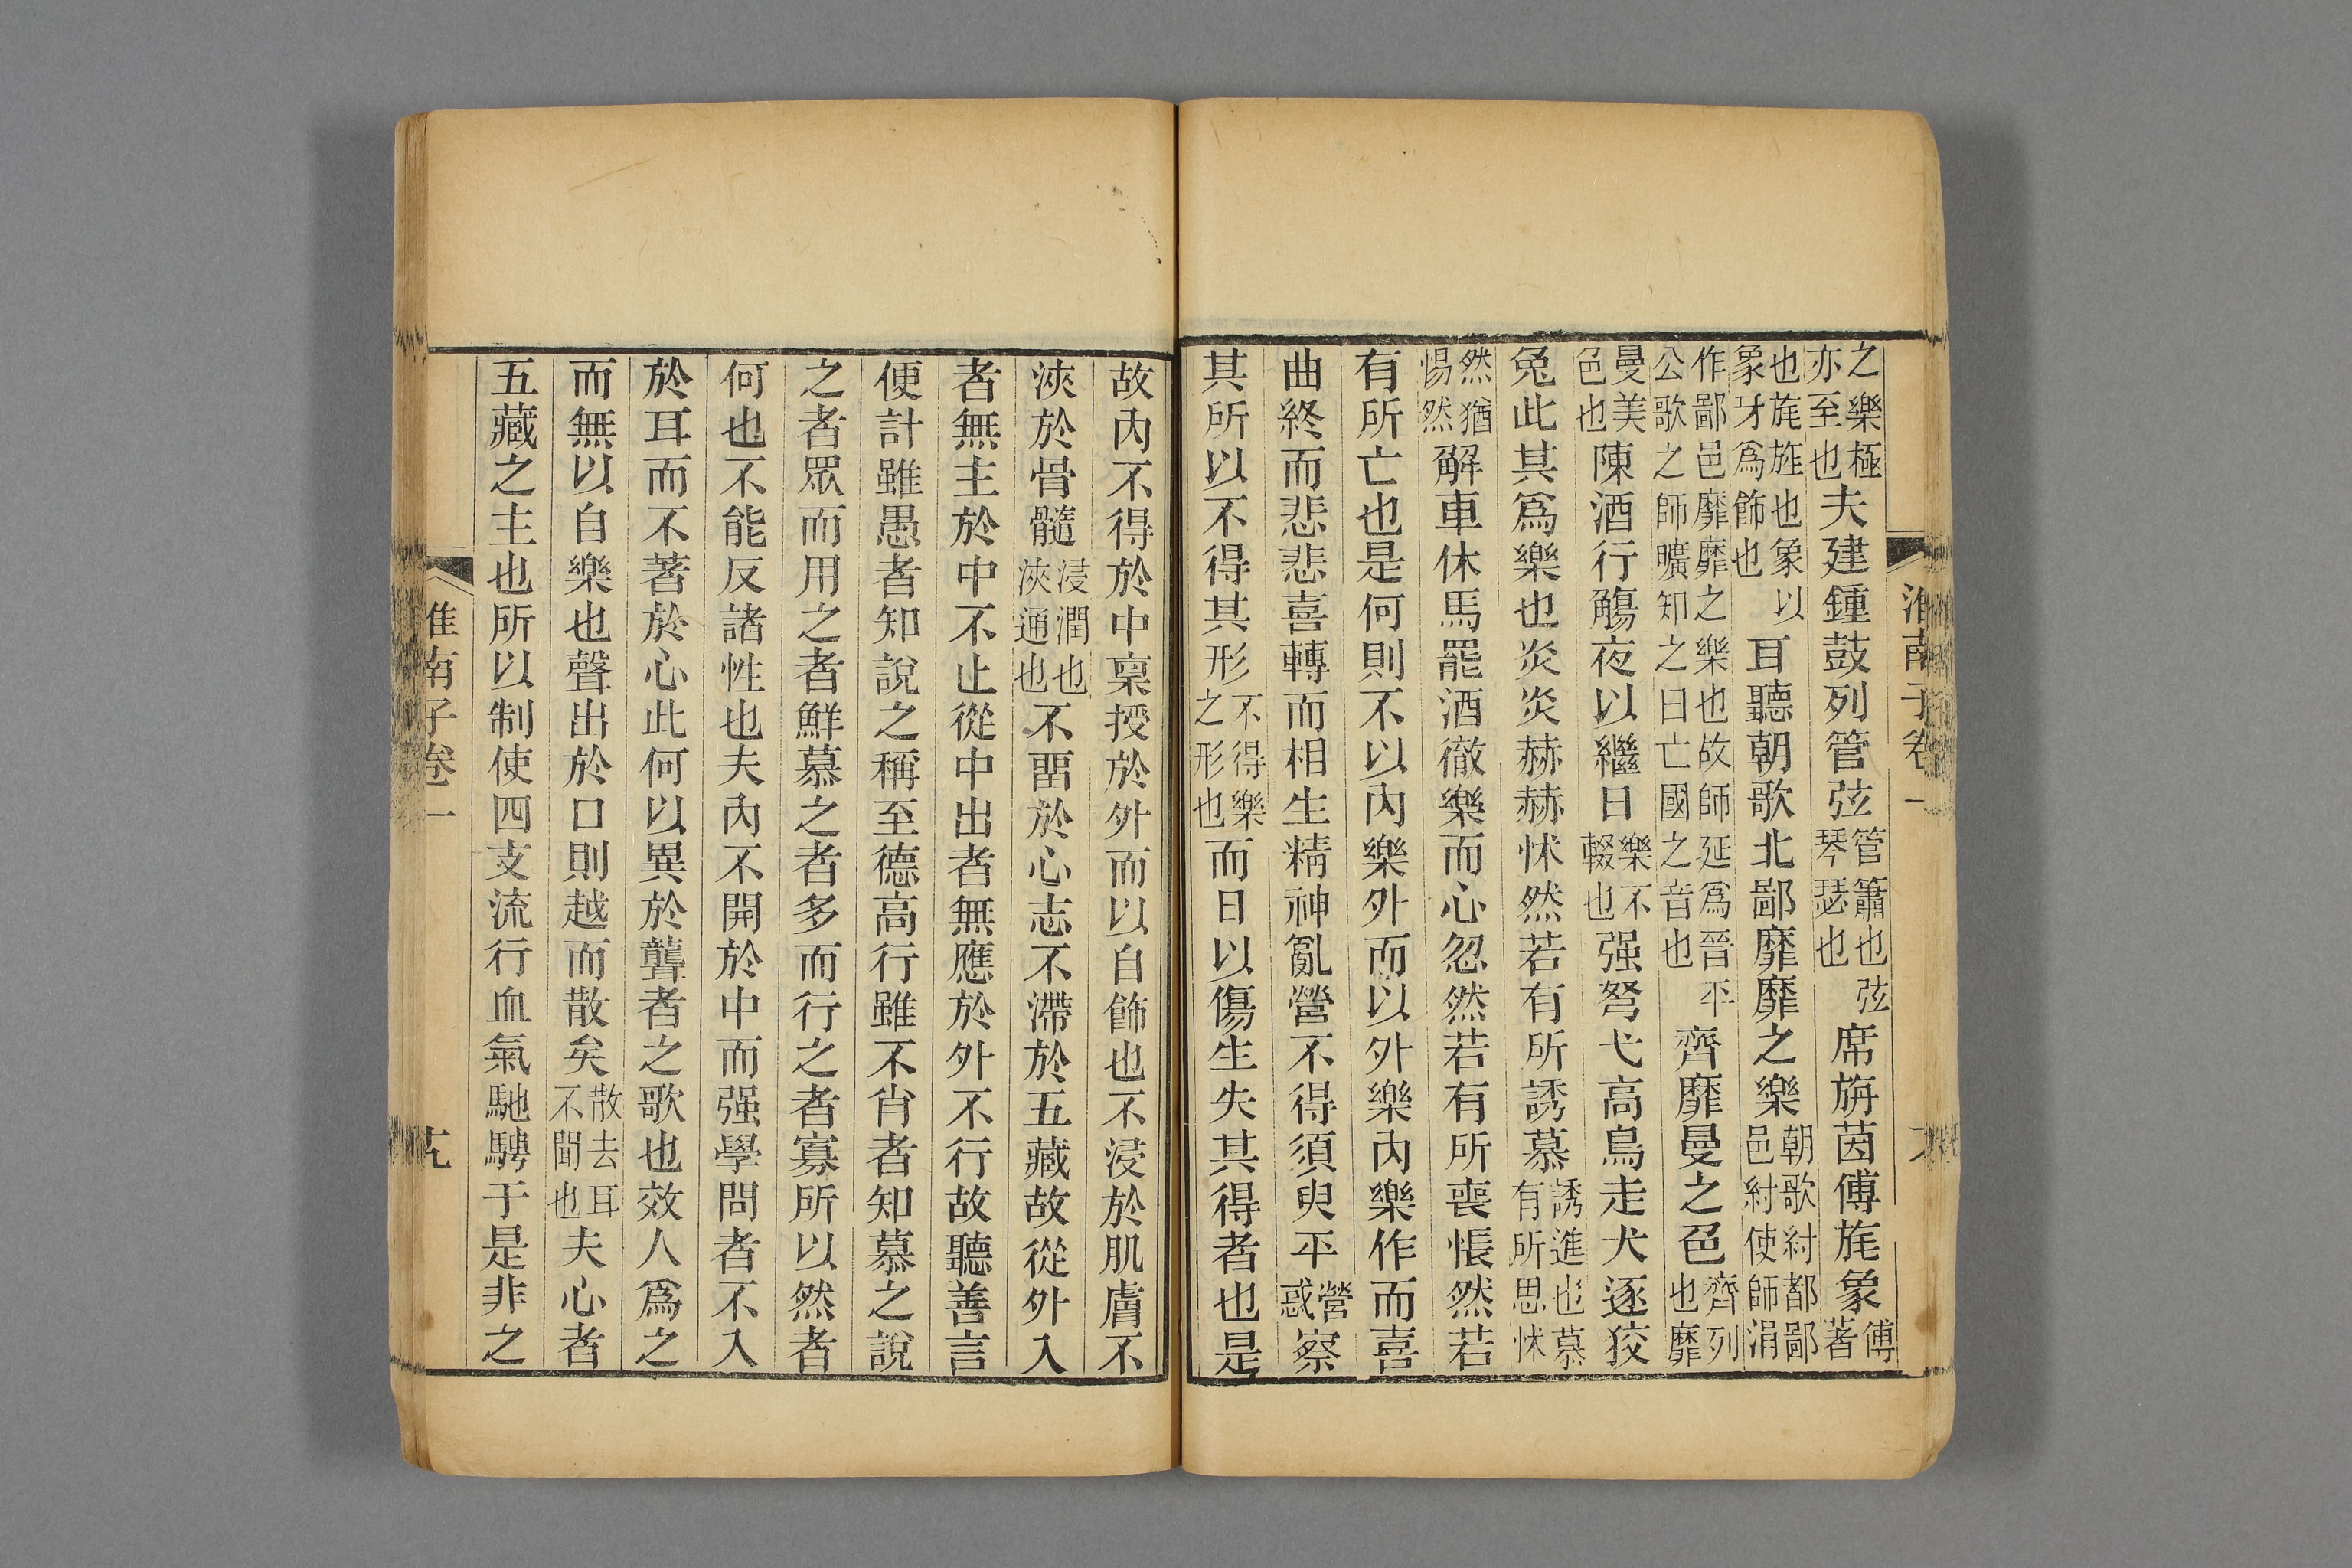 淮南子卷一
之樂極亦至也夫建鍾鼓列管弦管簫也弦琴瑟也席旃茵傅旄象傅著
也旄旌也象以象牙爲飾也耳聽朝歌北鄙靡靡之樂朝歌紂都鄙邑紂使師涓
作鄙邑靡靡之樂也故師延爲晉平公歌之師曠知之曰亡國之音也齊靡曼之色齊列也靡
曼美色也陳酒行觴夜以繼日樂不輟也强弩弋高鳥走犬逐狡
兔此其爲樂也炎炎赫赫怵然若有所誘慕誘進也慕有所思怵
然猶惕然解車休馬罷酒徹樂而心忽然若有所喪悵然若
有所亡也是何則不以內樂外而以外樂內樂作而喜
曲終而悲悲喜轉而相生精神亂營不得須臾平營惑察
其所以不得其形不得樂之形也而日以傷生失其得者也是
故內不得於中稟授於外而以自飾也不浸於肌膚不
浹於骨髓浸潤也浹通也不畱於心志不滯於五藏故從外入
者無主於中不止從中出者無應於外不行故聽善言
便計雖愚者知說之稱至德高行雖不肖者知慕之說
之者眾而用之者鮮慕之者多而行之者寡所以然者
何也不能反諸性也夫內不開於中而强學問者不入
於耳而不著於心此何以異於聾者之歌也效人爲之
而無以自樂也聲出於口則越而散矣散去耳不聞也夫心者
五藏之主也所以制使四支流行血氣馳騁于是非之
淮南子卷一